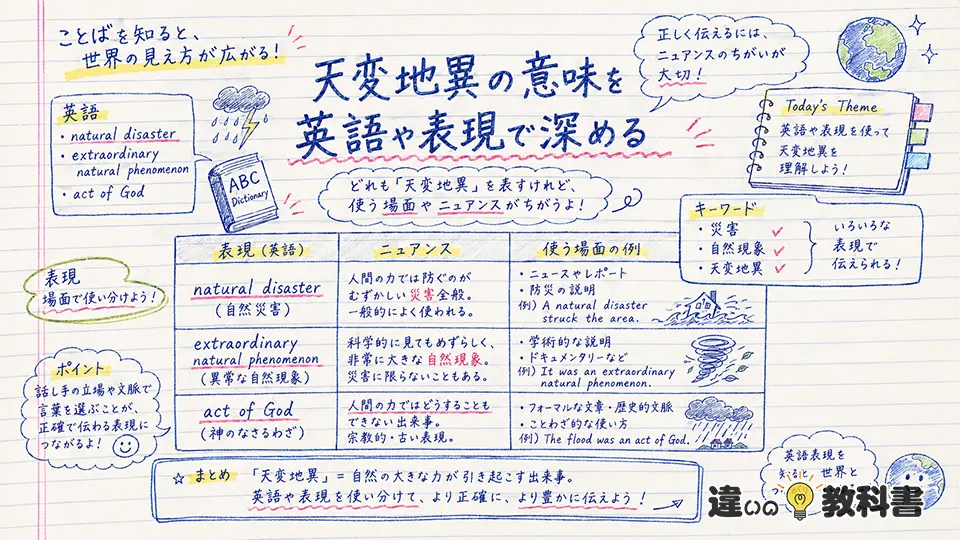 ことばを知ると、
世界の見え方が広がる!
天変地異の意味を
英語や表現で深める
正しく伝えるには、
ニュアンスのちがいが
大切!
Today's Theme
英語や表現を使って
天変地異を
理解しよう!
英語
・natural disaster
・extraordinary
natural phenomenon
・act of God
ABC
Dictionary
どれも「天変地異」を表すけれど、
使う場面やニュアンスがちがうよ!
キーワード
・災害 ✓
・自然現象 ✓
・天変地異 ✓
いろいろな
表現で
伝えられる!
表現
場面で使い分けよう!
ポイント
話し手の立場や文脈で
言葉を選ぶことが、
正確で伝わる表現に
つながるよ!
表現(英語)
ニュアンス
使う場面の例
natural disaster
(自然災害)
人間の力では防ぐのが
むずかしい災害全般。
一般的によく使われる。
・ニュースやレポート
・防災の説明
例) A natural disaster
struck the area.
extraordinary
natural phenomenon
(異常な自然現象)
科学的に見てもめずらしく、
非常に大きな自然現象。
災害に限らないこともある。
・学術的な説明
・ドキュメンタリーなど
例) It was an extraordinary
natural phenomenon.
act of God
(神のなさるわざ)
人間の力ではどうすることも
できない出来事。
宗教的・古い表現。
・フォーマルな文章・歴史的文脈
・ことわざ的な使い方
例) The flood was an act of God.
☆ まとめ 「天変地異」=自然の大きな力が引き起こす出来事。
英語や表現を使い分けて、より正確に、より豊かに伝えよう!
英語表現を
知ると、世界と
違いの教科書